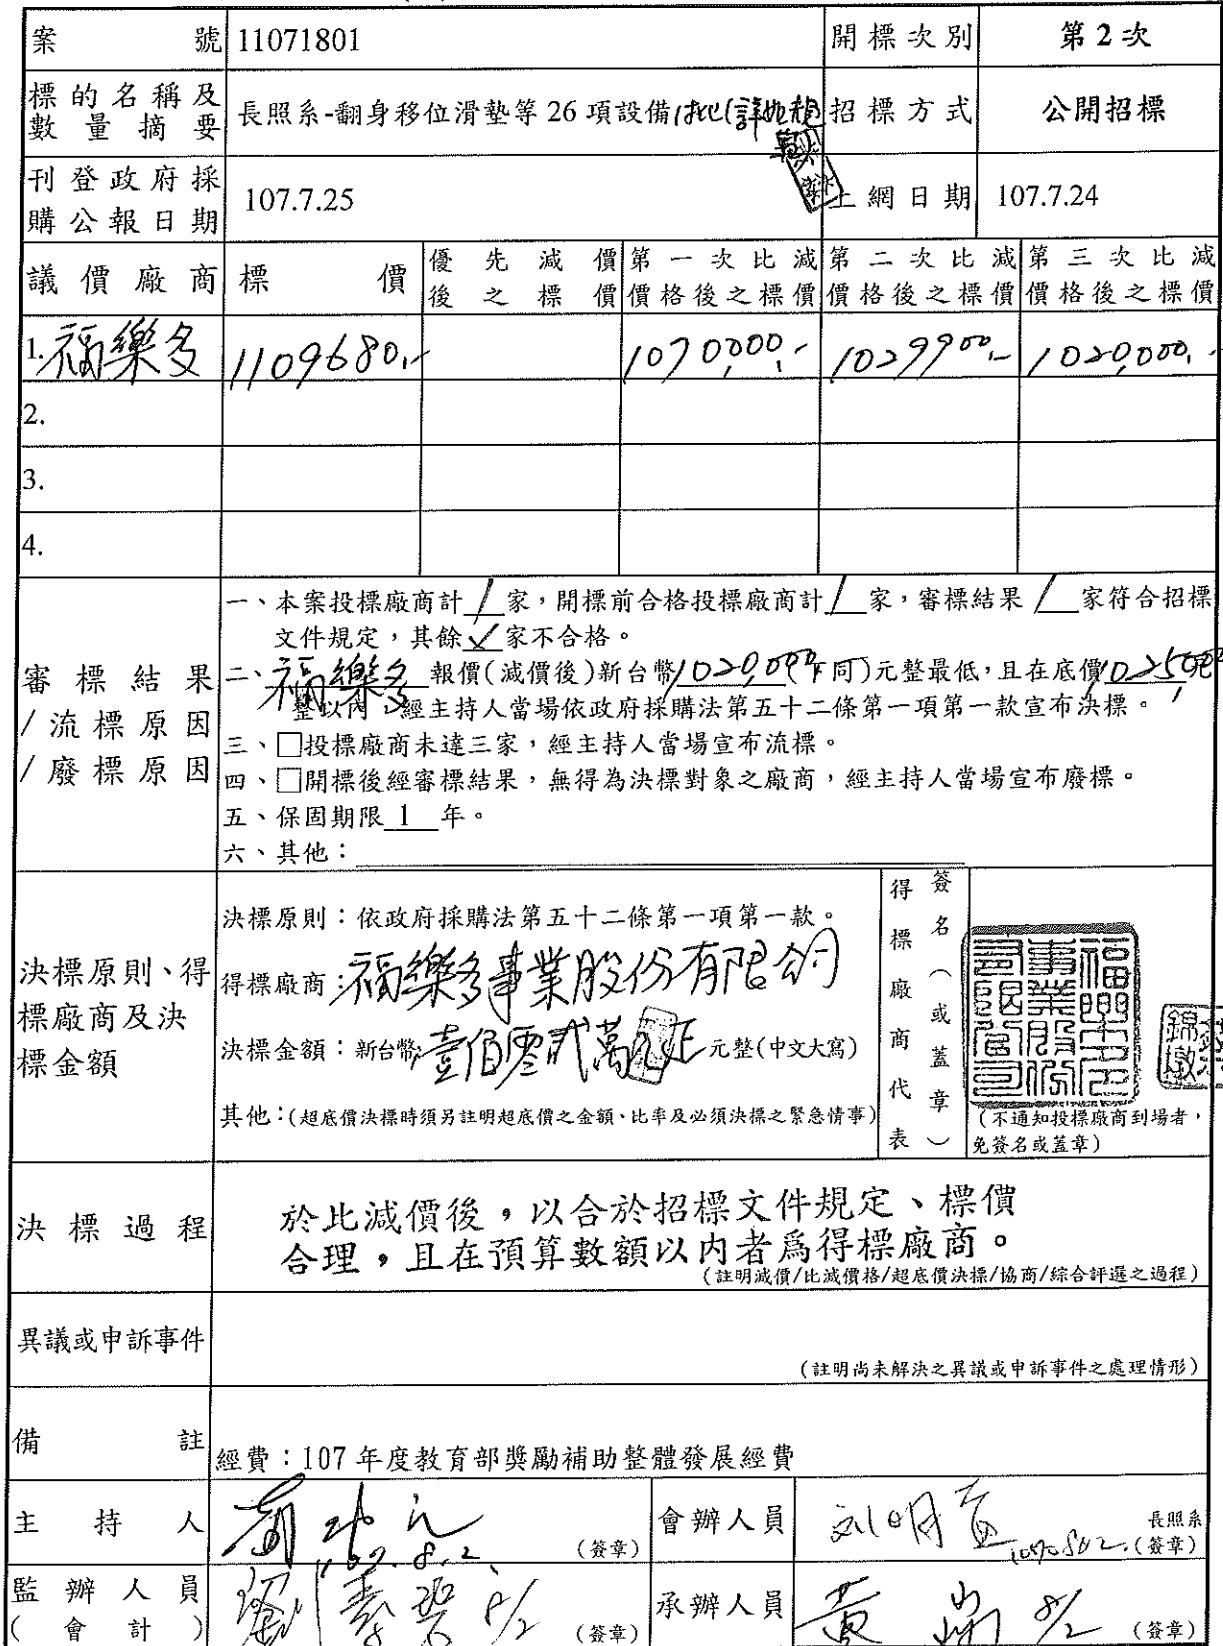 案號 11071801 開標次別 第2次
標的名稱及數量摘要 長照系-翻身移位滑墊等 26 項設備1批(詳如 招標方式 公開招標
刊登政府採購公報日期 107.7.25 上網日期 107.7.24
議價廠商 標價 優先減價後之標價 第一次比減價格後之標價 第二次比減價格後之標價 第三次比減價格後之標價
1.福樂多 1109680.- 1070,000.- 1029900.- 1020,000.-
2.
3.
4.
審標結果/流標原因/廢標原因
一、本案投標廠商計 / 家，開標前合格投標廠商計 / 家，審標結果 / 家符合招標
文件規定，其餘 ✓ 家不合格。
二、福樂多 報價(減價後)新台幣1020,000(下同)元整最低，且在底價1025,000元
整以內，經主持人當場依政府採購法第五十二條第一項第一款宣布決標。
三、□投標廠商未達三家，經主持人當場宣布流標。
四、□開標後經審標結果，無得為決標對象之廠商，經主持人當場宣布廢標。
五、保固期限 1 年。
六、其他：
決標原則、得標廠商及決標金額
決標原則：依政府採購法第五十二條第一項第一款。
得標廠商：福樂多事業股份有限公司
決標金額：新台幣壹佰零貳萬元正元整(中文大寫)
其他：(超底價決標時須另註明超底價之金額、比率及必須決標之緊急情事)
得標廠商代表簽名（或蓋章）
福樂多事業股份有限公司
錦墩
(不通知投標廠商到場者，
免簽名或蓋章)
決標過程
於比減價後，以合於招標文件規定、標價
合理，且在預算數額以內者為得標廠商。
(註明減價/比減價格/超底價決標/協商/綜合評選之過程)
異議或申訴事件
(註明尚未解決之異議或申訴事件之處理情形)
備註 經費：107 年度教育部獎勵補助整體發展經費
主持人 107.8.2. (簽章) 會辦人員 刘明 長照系 (簽章)
監辦人員(會計) 8/2 (簽章) 承辦人員 黃 8/2 (簽章)